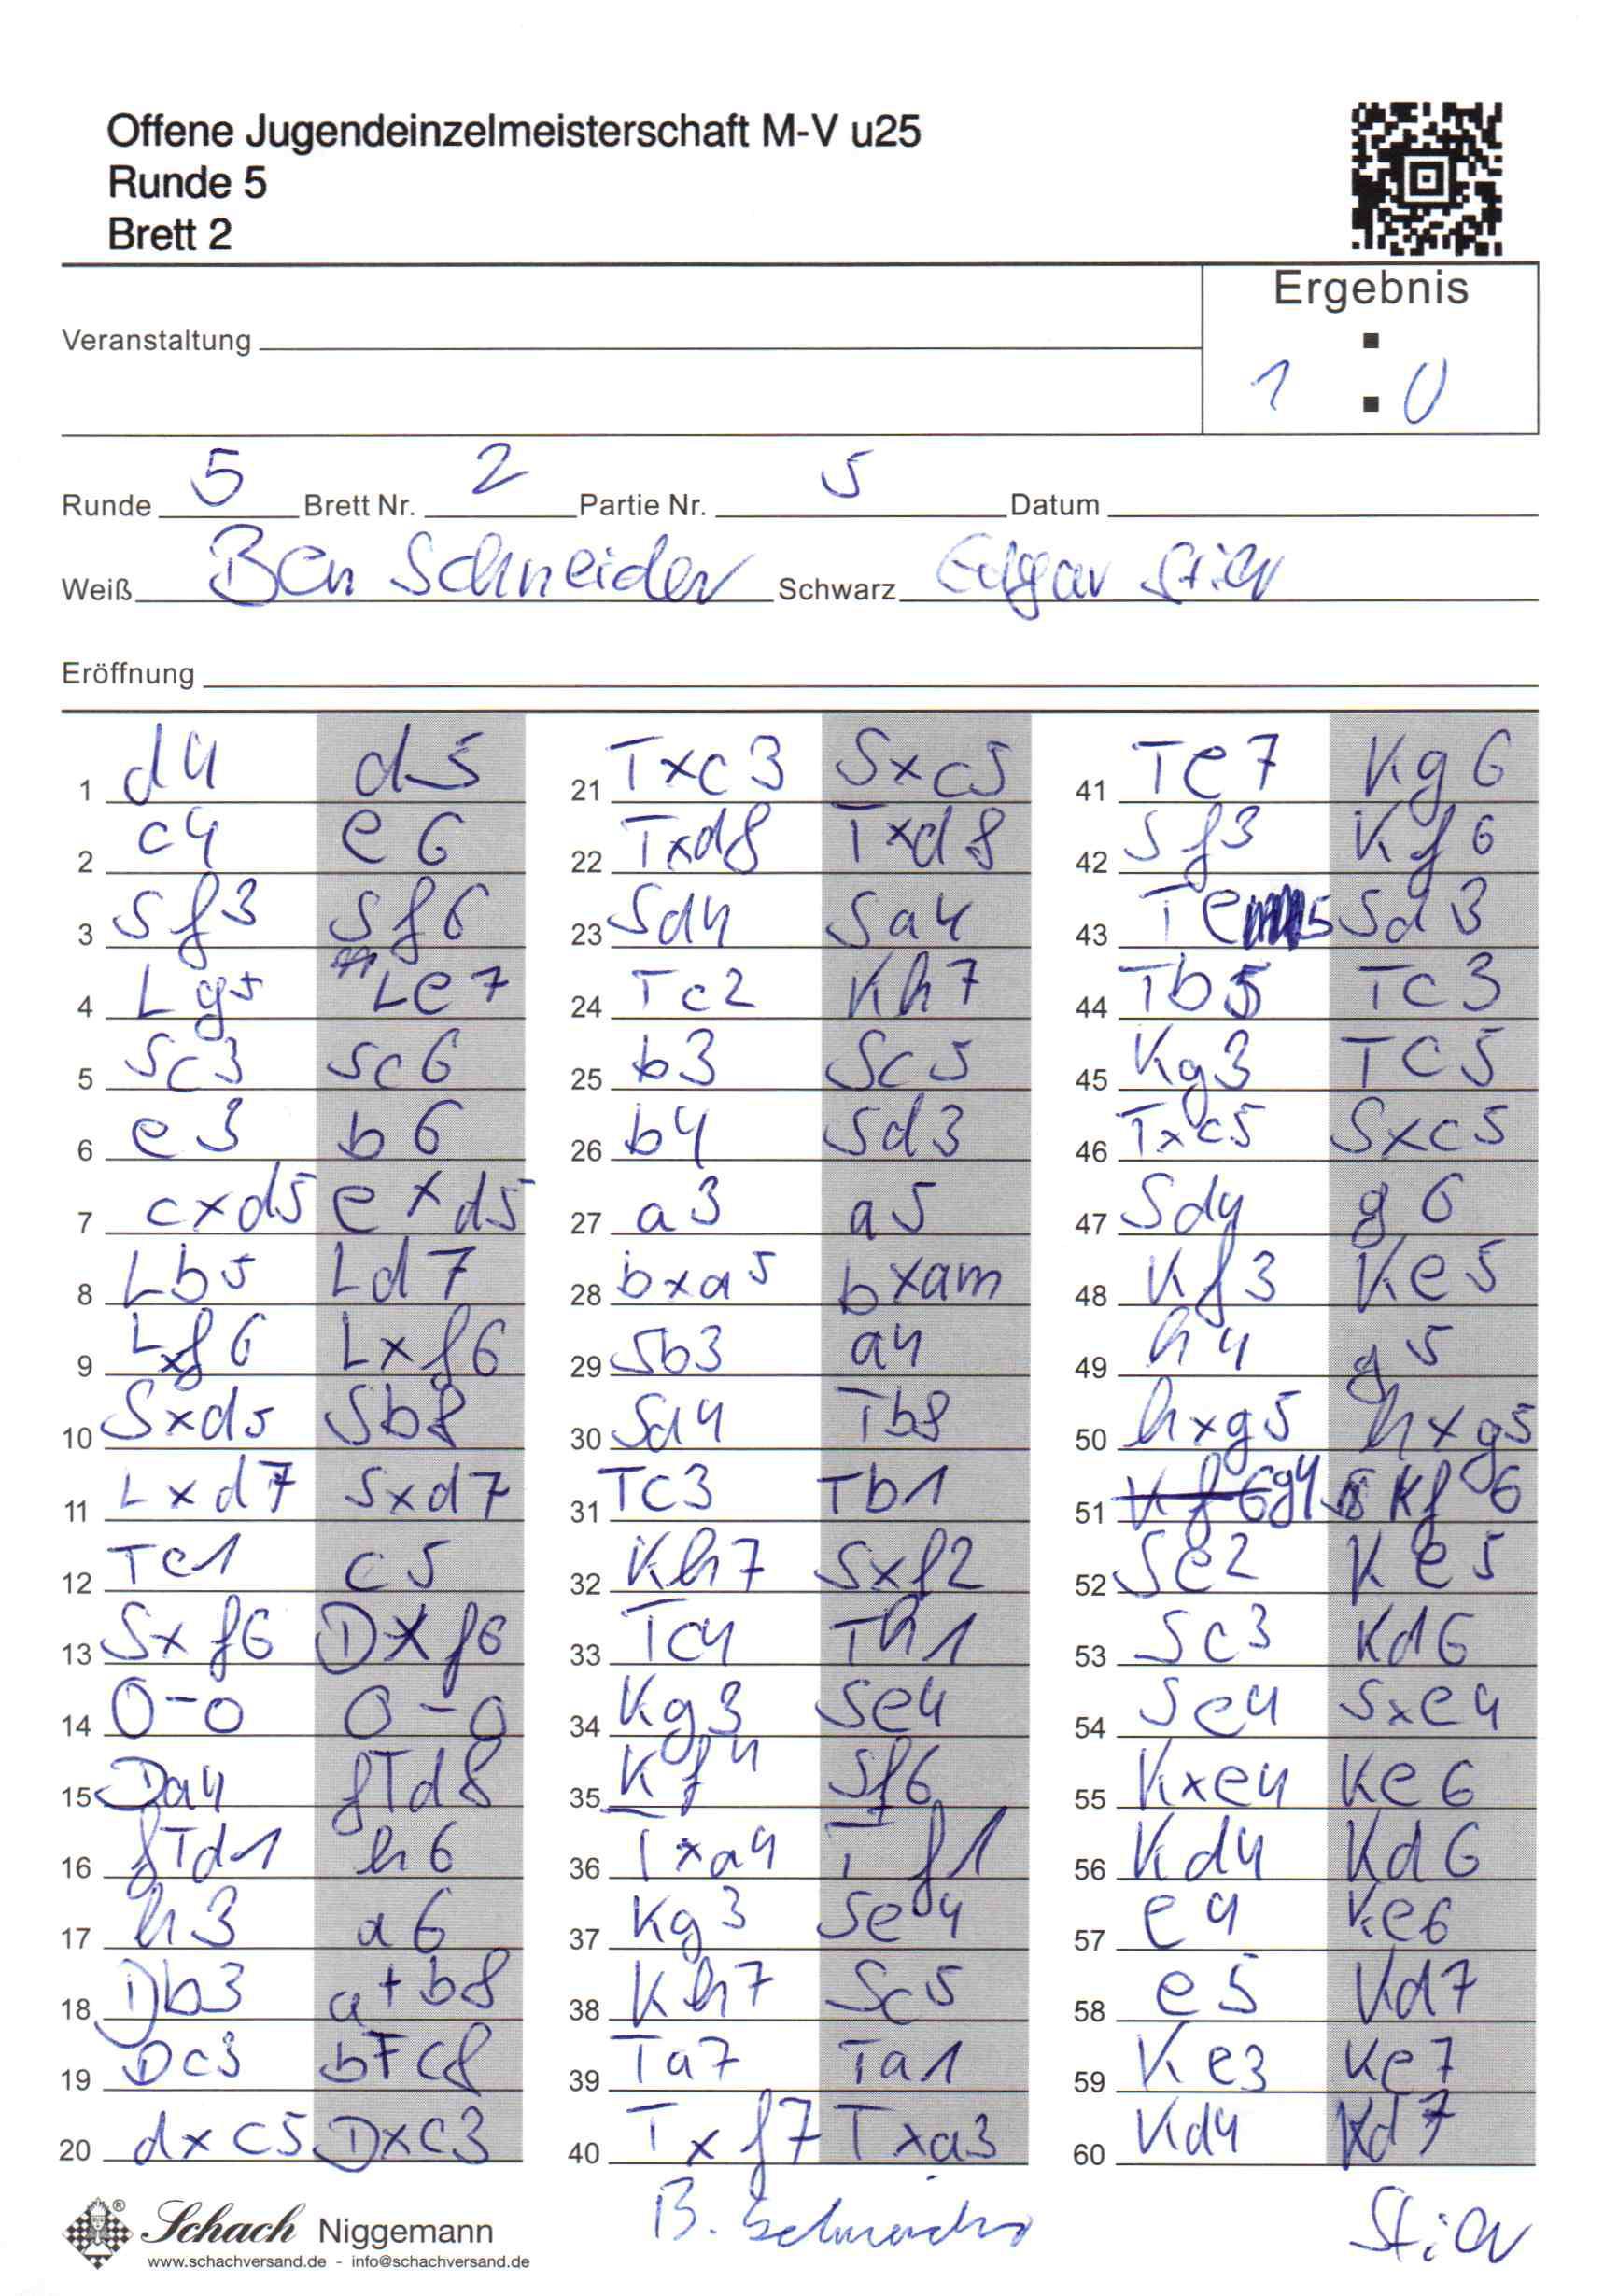 Offene Jugendeinzelmeisterschaft M-V u25
Runde 5
Brett 2
Ergebnis
Veranstaltung
1 : 0
Runde 5 Brett Nr. 2 Partie Nr. 5 Datum
Weiß Ben Schneider Schwarz Edgar Stier
Eröffnung
1 d4 d5
2 c4 e6
3 Sf3 Sf6
4 Lg5 Le7
5 Sc3 Sc6
6 e3 b6
7 cxd5 exd5
8 Lb5 Ld7
9 Lxf6 Lxf6
10 Sxd5 Sb8
11 Lxd7 Sxd7
12 Tc1 c5
13 Sxf6 Dxf6
14 0-0 0-0
15 Da4 fTd8
16 fTd1 h6
17 h3 a6
18 Db3 a+b8
19 Dc3 bTc8
20 dxc5 Dxc3
21 Txc3 Sxc5
22 Txd8 Txd8
23 Sd4 Sa4
24 Tc2 Kh7
25 b3 Sc5
26 b4 Sd3
27 a3 a5
28 bxa5 bxam
29 Sb3 a4
30 Sd4 Tb8
31 Tc3 Tb1
32 Kh7 Sxf2
33 Tc4 Th1
34 Kg3 Se4
35 Kf4 Sf6
36 Txa4 Tf1
37 Kg3 Se4
38 Kh7 Sc5
39 Ta7 Ta1
40 Txf7 Txa3
41 Te7 Kg6
42 Sf3 Kf6
43 Te5 Sd3
44 Tb5 Tc3
45 Kg3 Tc5
46 Txc5 Sxc5
47 Sd4 g6
48 Kf3 Ke5
49 h4 g5
50 hxg5 hxg5
51 g4 Kf6
52 Se2 Ke5
53 Sc3 Kd6
54 Se4 Sxe4
55 Kxe4 Ke6
56 Kd4 Kd6
57 e4 Ke6
58 e5 Kd7
59 Ke3 Ke7
60 Kd4 Kd7
Schach Niggemann
www.schachversand.de - info@schachversand.de
B. Schneider
Stier